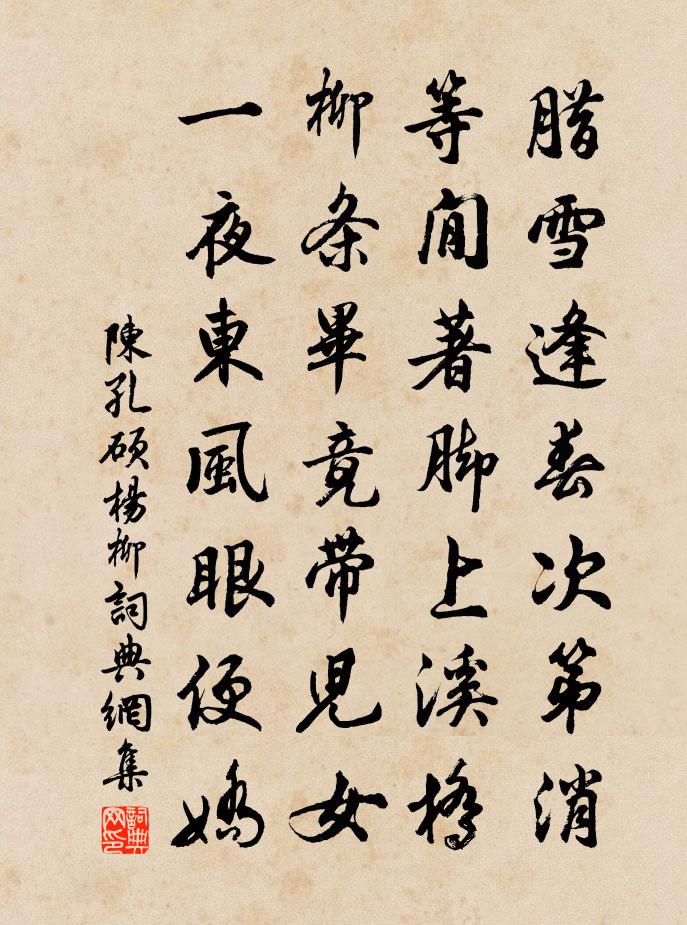 腊雪逢春次第消
等閒著脚上溪橋
柳条畢竟帶児女
一夜東風眼便嬌
陳孔碩楊柳詞典網集
詞典网印